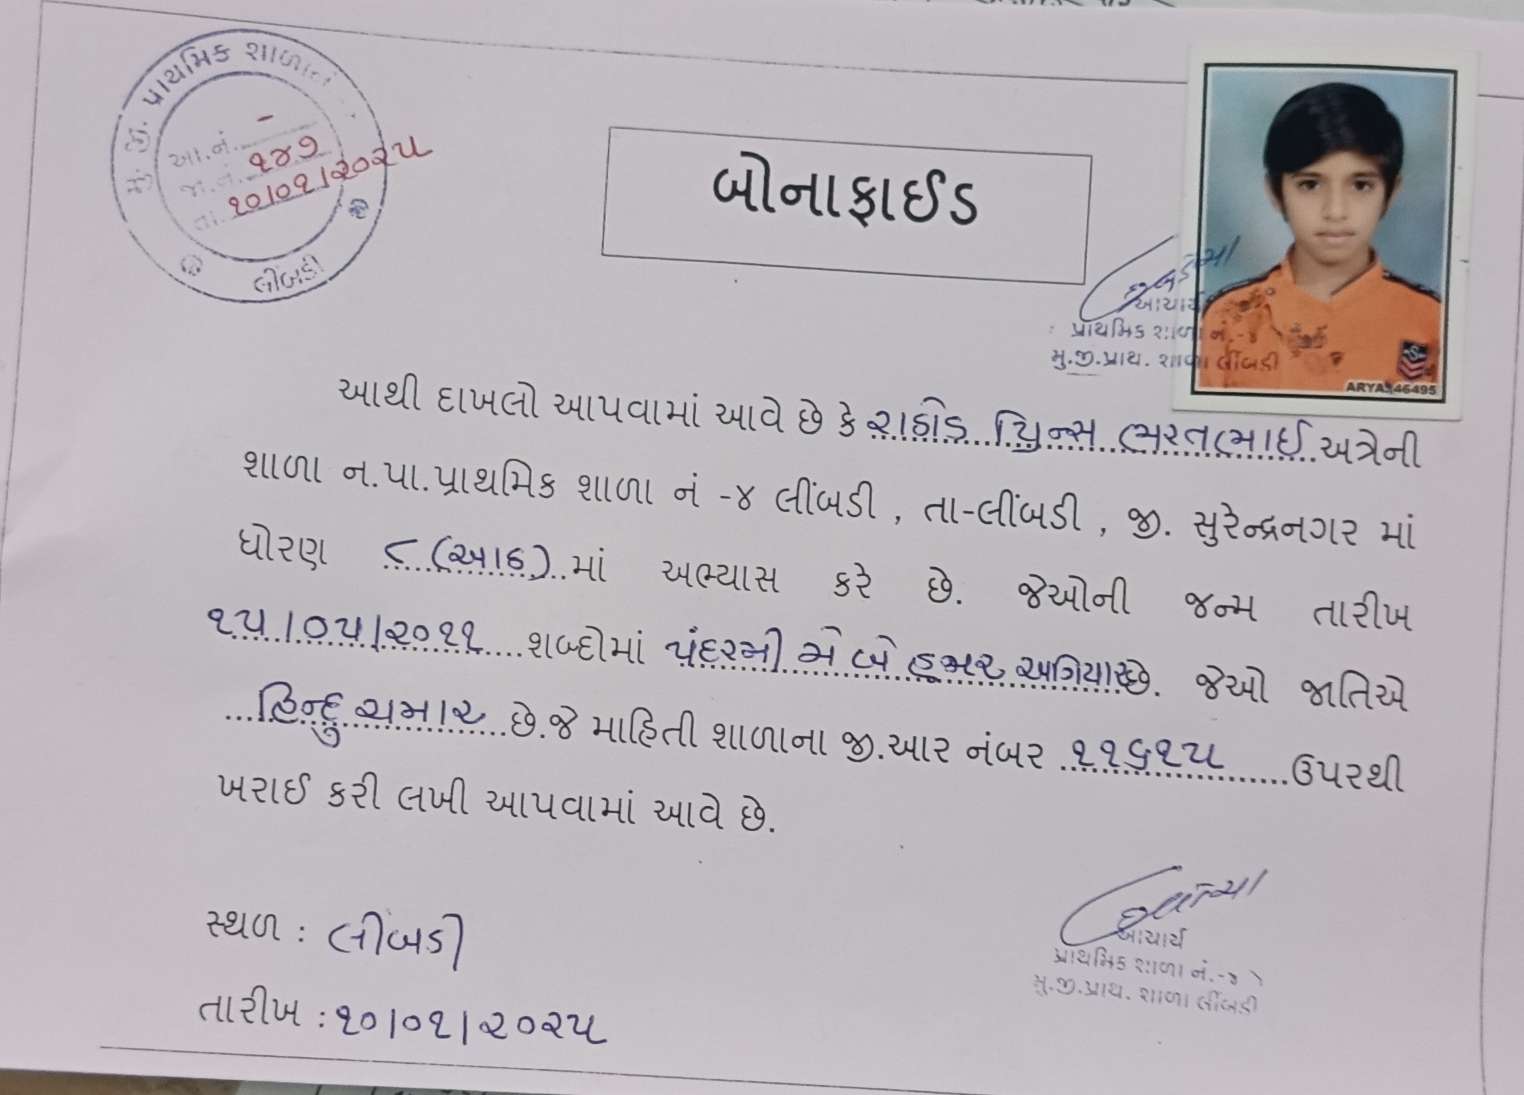 પ્રાથમિક શાળા નં.
આ.નં. -
જા.નં. ૧૪૭
તા. ૧૦/૦૧/૨૦૨૫
લીંબડી
બોનાફાઈડ
આચાર્ય
પ્રાથમિક શાળા નં.-૪
મુ.જી.પ્રાથ. શાળા લીંબડી
ARYA 46495
આથી દાખલો આપવામાં આવે છે કે રાઠોડ પ્રિન્સ ભરતભાઈ અત્રેની
શાળા ન.પા.પ્રાથમિક શાળા નં -૪ લીંબડી , તા-લીંબડી , જી. સુરેન્દ્રનગર માં
ધોરણ ૮ (આઠ) માં અભ્યાસ કરે છે. જેઓની જન્મ તારીખ
૧૫/૦૫/૨૦૧૧ શબ્દોમાં પંદરમી મે બે હજાર અગિયાર છે. જેઓ જાતિએ
હિન્દુ ચમાર છે.જે માહિતી શાળાના જી.આર નંબર ૧૧૬૧૫ ઉપરથી
ખરાઈ કરી લખી આપવામાં આવે છે.
સ્થળ : લીંબડી
તારીખ : ૧૦/૦૧/૨૦૨૫
આચાર્ય
પ્રાથમિક શાળા નં.-૪
મુ.જી.પ્રાથ. શાળા લીંબડી